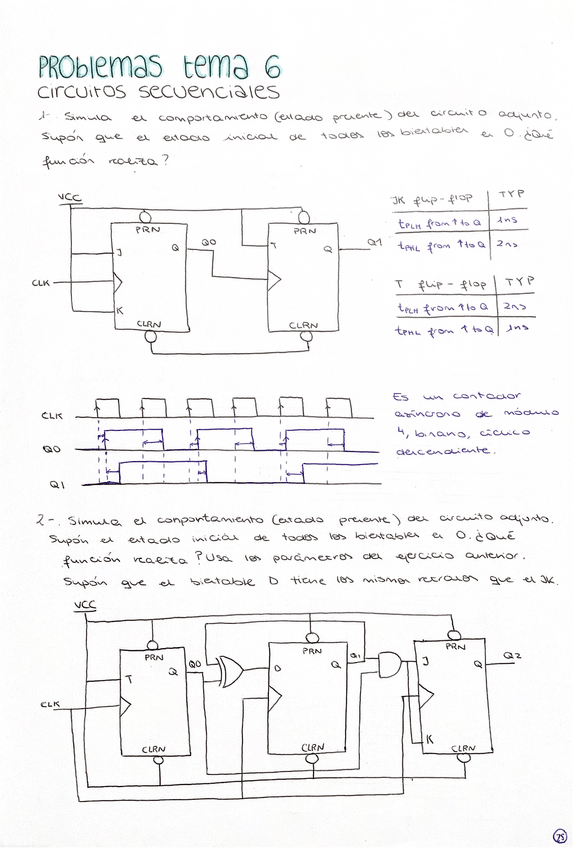 PROBLEMAS tema 6
circuitos secuenciales
1- Simula el comportamiento (estado presente) del circuito adjunto.
Supón que el estado inicial de todos los biestables es 0. ¿Qué
función realiza?
VCC
PRN
J
Q
Q0
CLK
K
CLRN
PRN
T
Q
Q1
CLRN
JK flip-flop TYP
tPLH from ↑ to Q 1ns
tPHL from ↑ to Q 2ns
T flip-flop TYP
tPLH from ↑ to Q 2ns
tPHL from ↑ to Q 1ns
CLK
Q0
Q1
Es un contador
asíncrono de módulo
4, binario, cíclico
descendiente.
2-. Simula el comportamiento (estado presente) del circuito adjunto.
Supón el estado inicial de todos los biestables es 0. ¿Qué
función realiza? Usa los parámetros del ejercicio anterior.
Supón que el biestable D tiene los mismos retrasos que el JK.
VCC
PRN
T
Q
Q0
CLK
CLRN
PRN
D
Q
Q1
CLRN
PRN
J
Q
Q2
K
CLRN
75